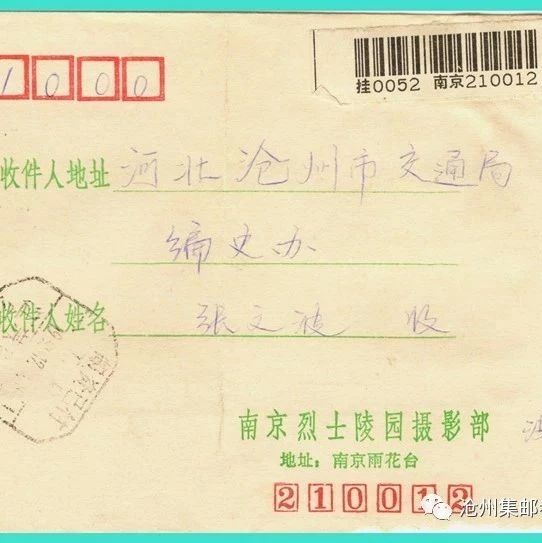 1000
挂0052 南京210012
收件人地址 河北沧州市交通局
编史办
收件人姓名 张文波 收
南京烈士陵园摄影部
地址：南京雨花台
210012
沧州集邮